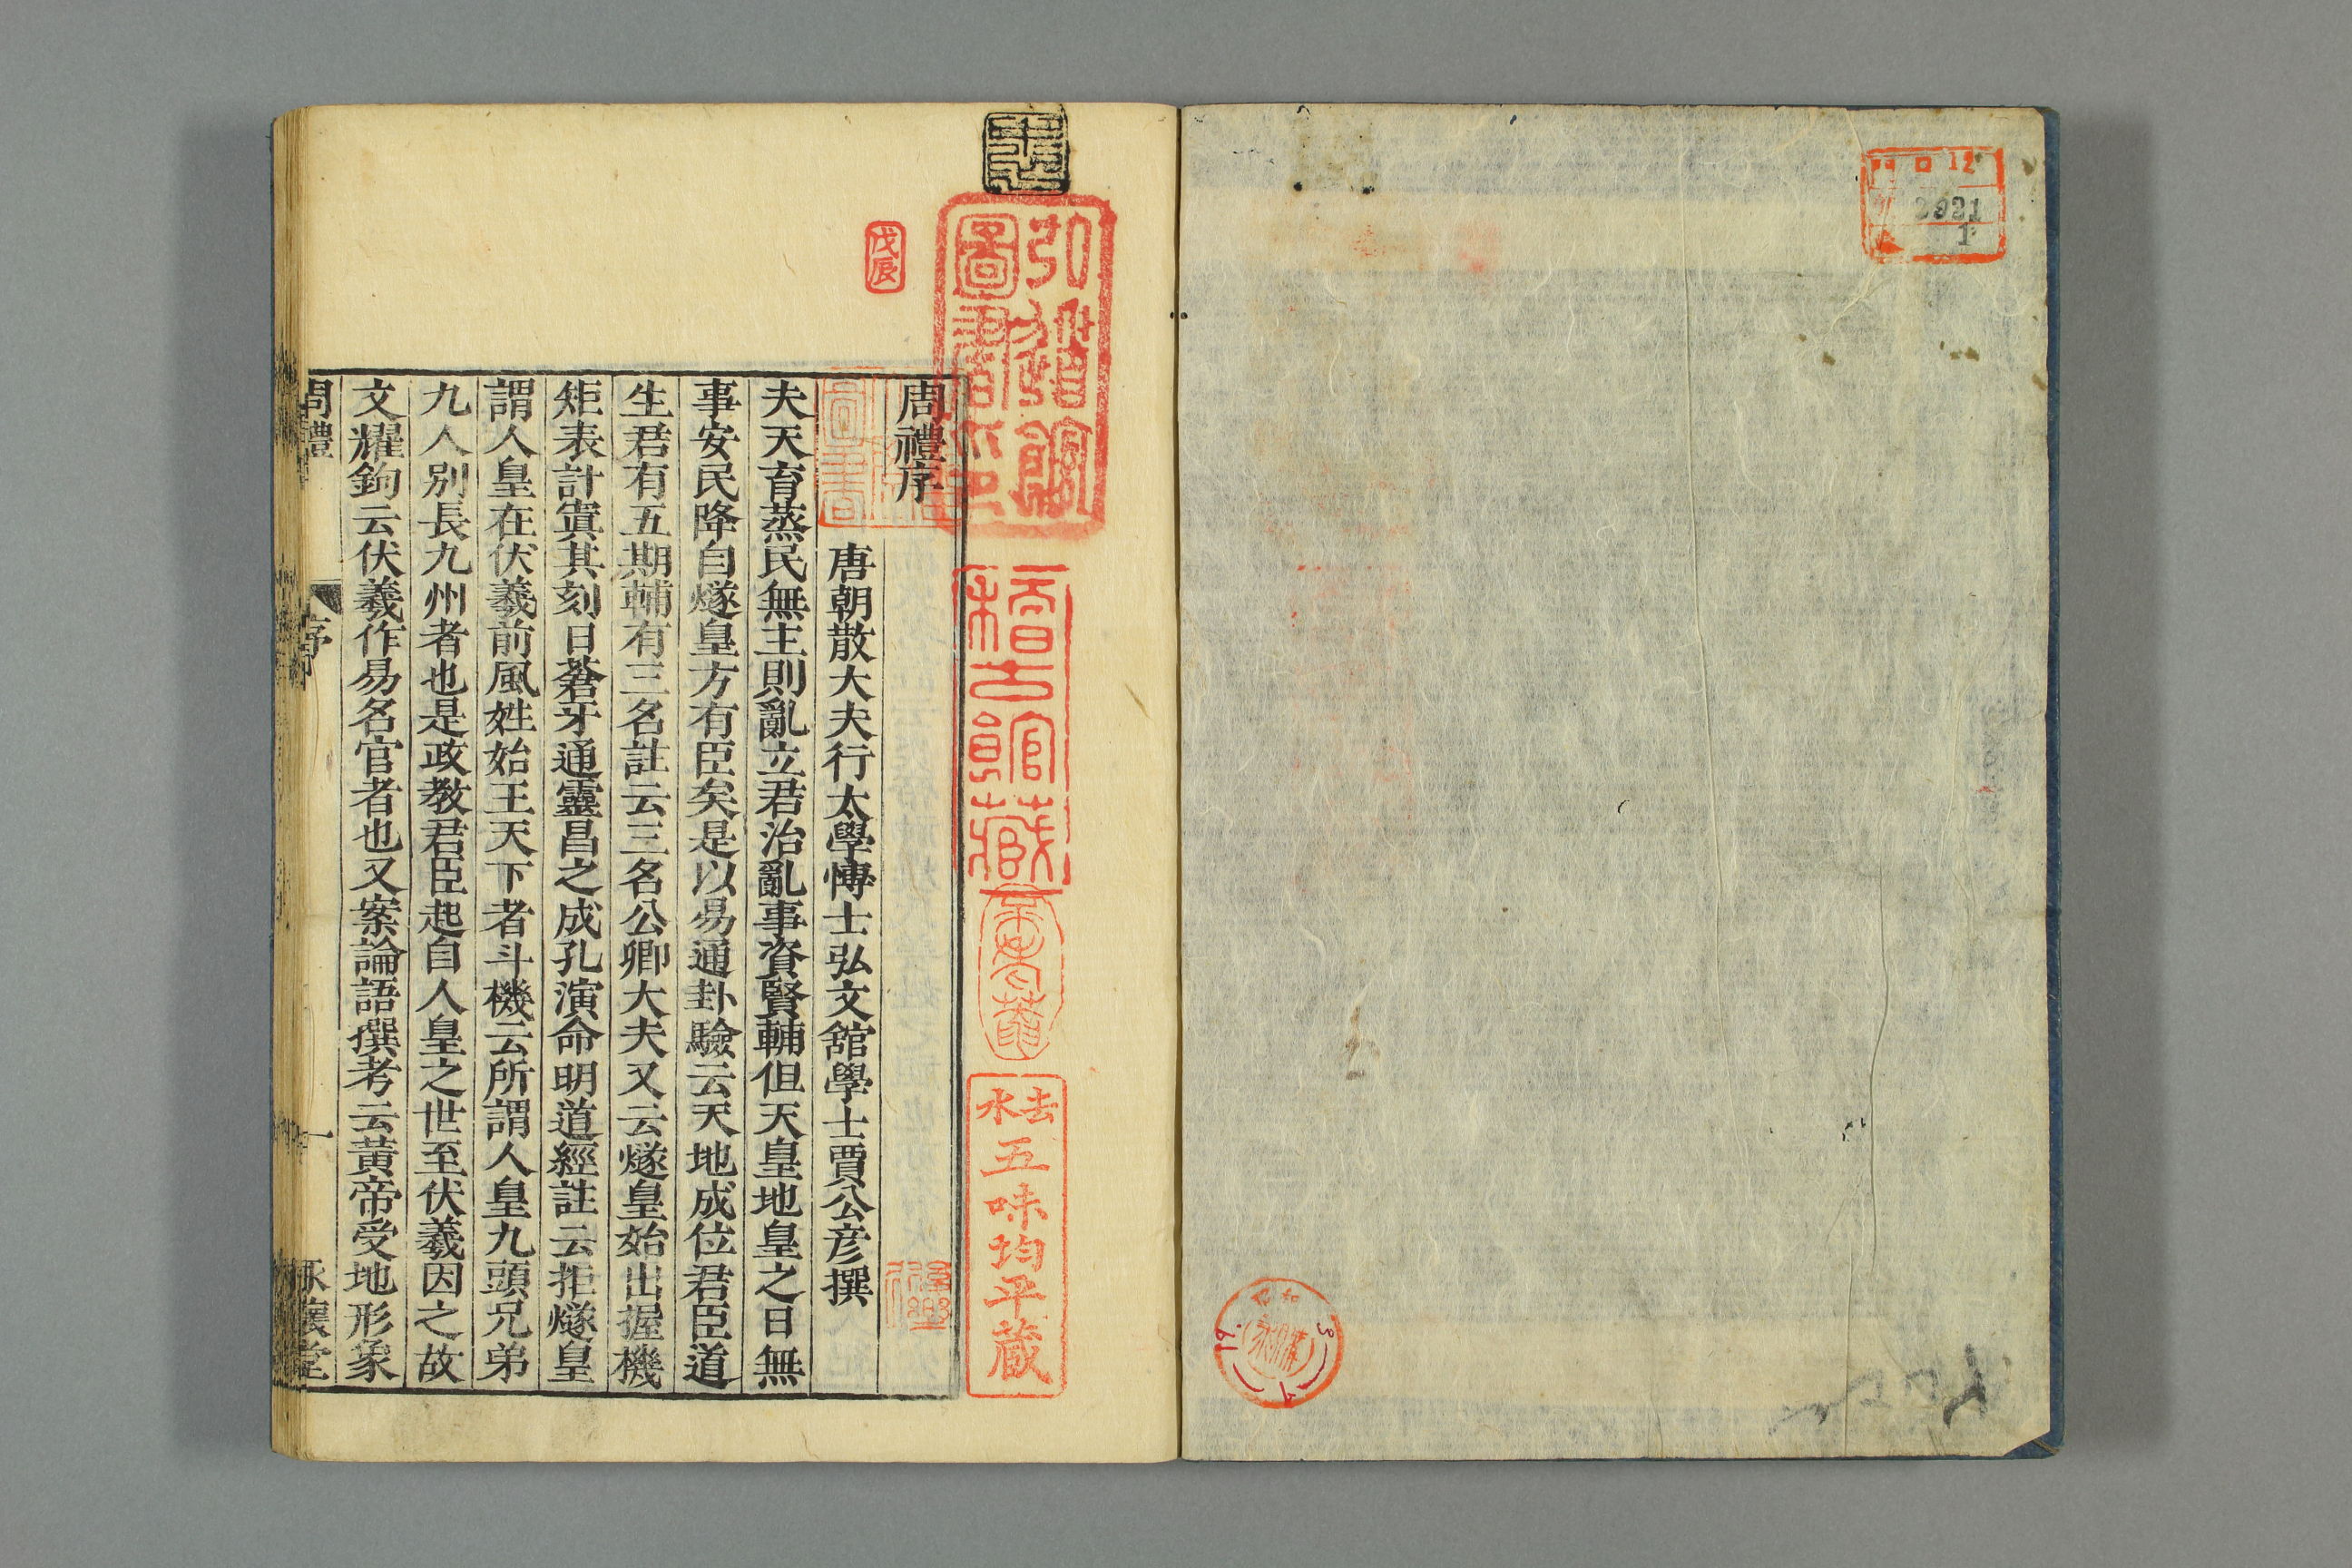 2921
1
戊辰
弘道館
圖書印
稽古館藏
去水
五味均平蔵
周禮序
唐朝散大夫行太學愽士弘文舘學士賈公彥撰
夫天育蒸民無主則亂立君治亂事資賢輔但天皇地皇之日無
事安民降自燧皇方有臣矣是以易通卦驗云天地成位君臣道
生君有五期輔有三名註云三名公卿大夫又云燧皇始出握機
矩表計寘其刻日蒼牙通靈昌之成孔演命明道經註云拒燧皇
謂人皇在伏羲前風姓始王天下者斗機云所謂人皇九頭兄弟
九人别長九州者也是政教君臣起自人皇之世至伏羲因之故
文耀鉤云伏羲作易名官者也又案論語撰考云黃帝受地形象
周禮
序
一
永懷堂